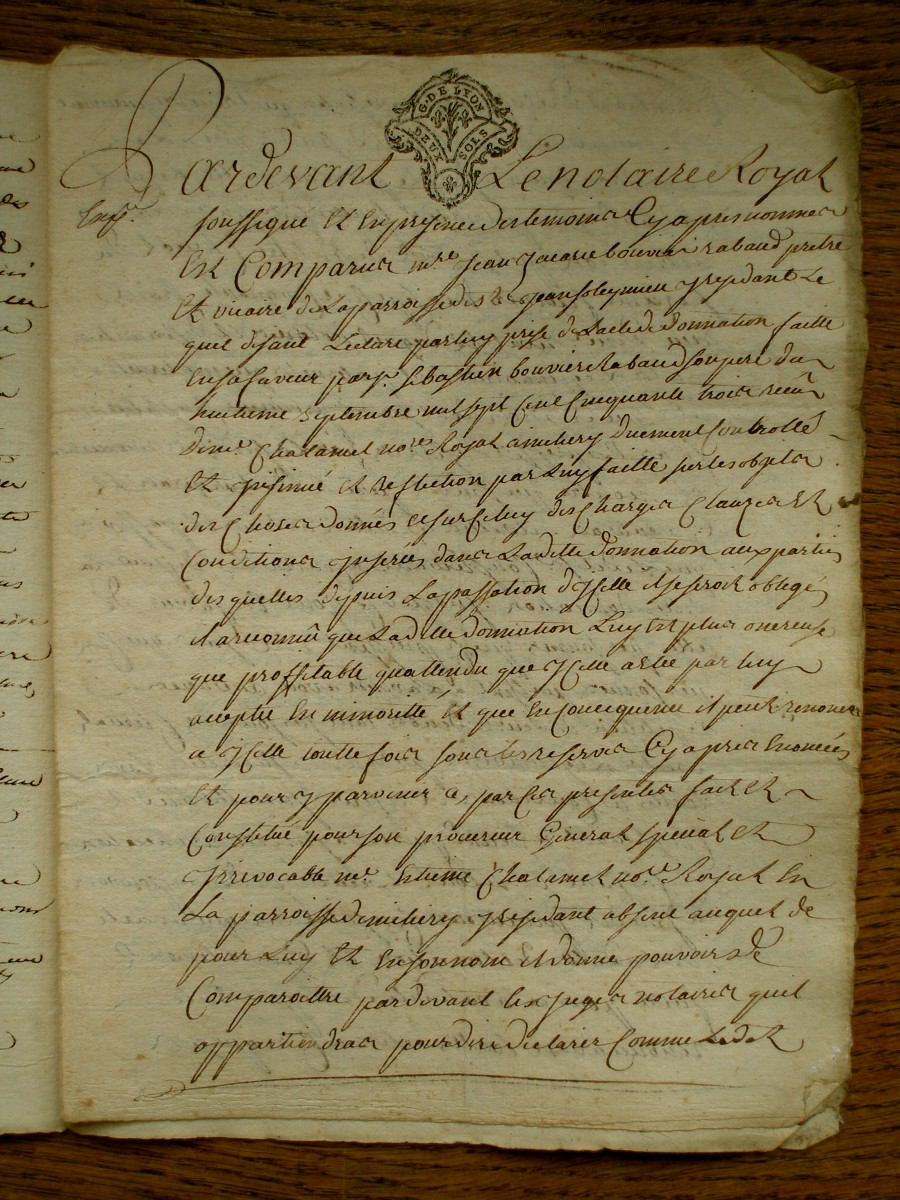 G. DE LYON
SOLS
Pardevant Le notaire Royal
soussigné Et En presence des temoins Cy apres nommés
Est Comparus mre Jean bouvier rabaud prêtre
Et vicaire de La parroisse de st jean soleymieu y residant Le
quel disant Lecture par luy prise de Lacte de donnation faitte
En sa faveur par sr sebastien bouvier Rabaud son pere du
huitieme septembre mil sept Cent Cinquante trois receu
de me. Chalamel nore Royal a duement Controllé
Et insinué Et reflection par Luy faitte sur les objets
des Choses donnés et sur Celuy des Charges Clauzes Et
Conditions inserés dans Laditte donnation aux parties
des quelles depuis La passation d'ycelle il se seroit obligé
il a reconnû que Laditte donnation Luy Est plus onereuse
que proffitable qu'attendu que ycelle a esté par luy
acceptée En minoritté Et que En Consequence il peut renoncer
a ycelle toutte fois sous les reserves Cy apres Enoncées
Et pour y parvenir a, par Ces presentes fait Et
Constitué pour son procureur General special Et
irrevocable me. Chalamel nore. Royal En
La parroisse de y residant absent auquel de
pour Luy Et En son nom il donne pouvoir de
Comparoittre pardevant les juges notaires quil
appartiendra pour dire declarer Comme Ledit